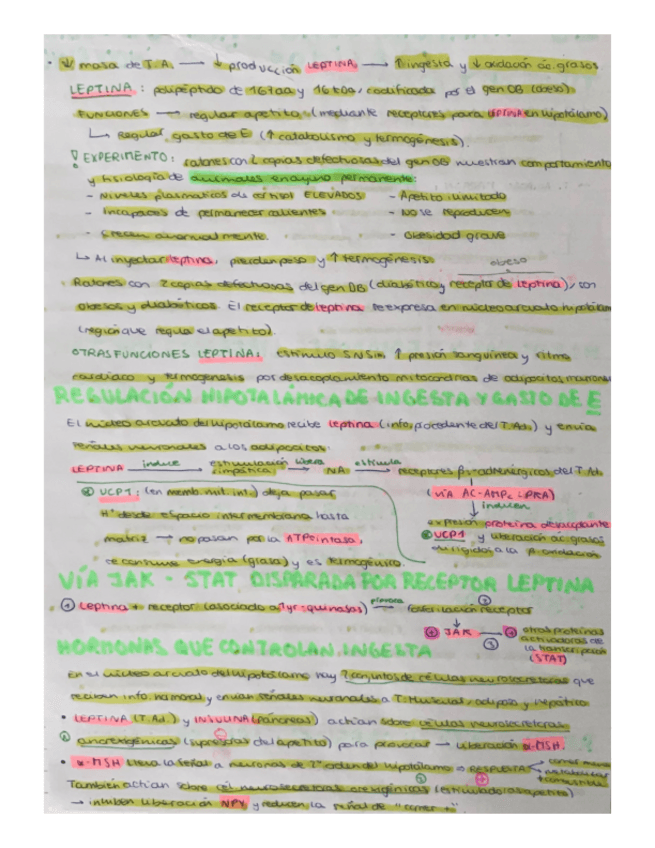 · ↓ masa de T.A. → ↓ producción LEPTINA → ↑ ingesta y ↓ oxidación ác. grasos
LEPTINA: polipéptido de 167aa y 16 kDa, codificada por el gen OB (obeso).
FUNCIONES → regular apetito (mediante receptores para LEPTINA en hipotálamo)
↳ Regular gasto de E (↑ catabolismo y termogénesis).
EXPERIMENTO: ratones con 2 copias defectuosas del gen OB muestran comportamiento
y fisiología de animales en ayuno permanente:
- Niveles plasmáticos de cortisol ELEVADOS - Apetito ilimitado
- Incapaces de permanecer calientes - NO se reproducen
- Crecen anormalmente. - Obesidad grave
↳ Al inyectar leptina, pierden peso y ↑ termogénesis.
obeso
Ratones con 2 copias defectuosas del gen DB (diabético y receptor de leptina), son
obesos y diabéticos. El receptor de leptina se expresa en núcleo arcuato hipotálamo
(región que regula el apetito).
OTRAS FUNCIONES LEPTINA: estímulo SNSim, ↑ presión sanguínea y ritmo
cardíaco y termogénesis por desacoplamiento mitocondrias de adipocitos marrones
REGULACIÓN HIPOTALÁMICA DE INGESTA Y GASTO DE E
El núcleo arcuato del hipotálamo recibe leptina (info. procedente del T.Ad.) y envía
señales neuronales a los adipocitos.
LEPTINA induce → estimulación simpática libera → NA estimula → receptores β₃-adrenérgicos del T.Ad.
(vía AC-AMPc (PKA)
↓ inducen
expresión proteína desacoplante
UCP1 y utilización ác. grasos
dirigidos a la β-oxidación
UCP1: (en memb. mit. int.) deja pasar
H⁺ desde espacio intermembrana hasta
matriz → no pasan por la ATPsintasa,
se consume energía (grasa) y es termogénico.
VÍA JAK - STAT DISPARADA POR RECEPTOR LEPTINA
① Leptina + receptor (asociado a Tyr-quinasas) provoca → fosforilación receptor ②
↓
JAK → ③ otras proteínas
activadoras de
la transcripción
(STAT)
HORMONAS QUE CONTROLAN INGESTA
En el núcleo arcuato del hipotálamo hay 2 conjuntos de células neurosecretoras que
reciben info. hormonal y envían señales neuronales a T. Muscular, adiposo y hepático
• LEPTINA (T.Ad.) y INSULINA (páncreas) actúan sobre células neurosecretoras
① anorexigénicas (supresoras del apetito) para provocar → liberación α-MSH.
• α-MSH lleva la señal a neuronas de 2º orden del hipotálamo ⇒ RESPUESTA comer menos
También actúan sobre cél. neurosecretoras orexigénicas (estimuladoras apetito)
→ inhiben liberación NPY y reducen la señal de "comer +".